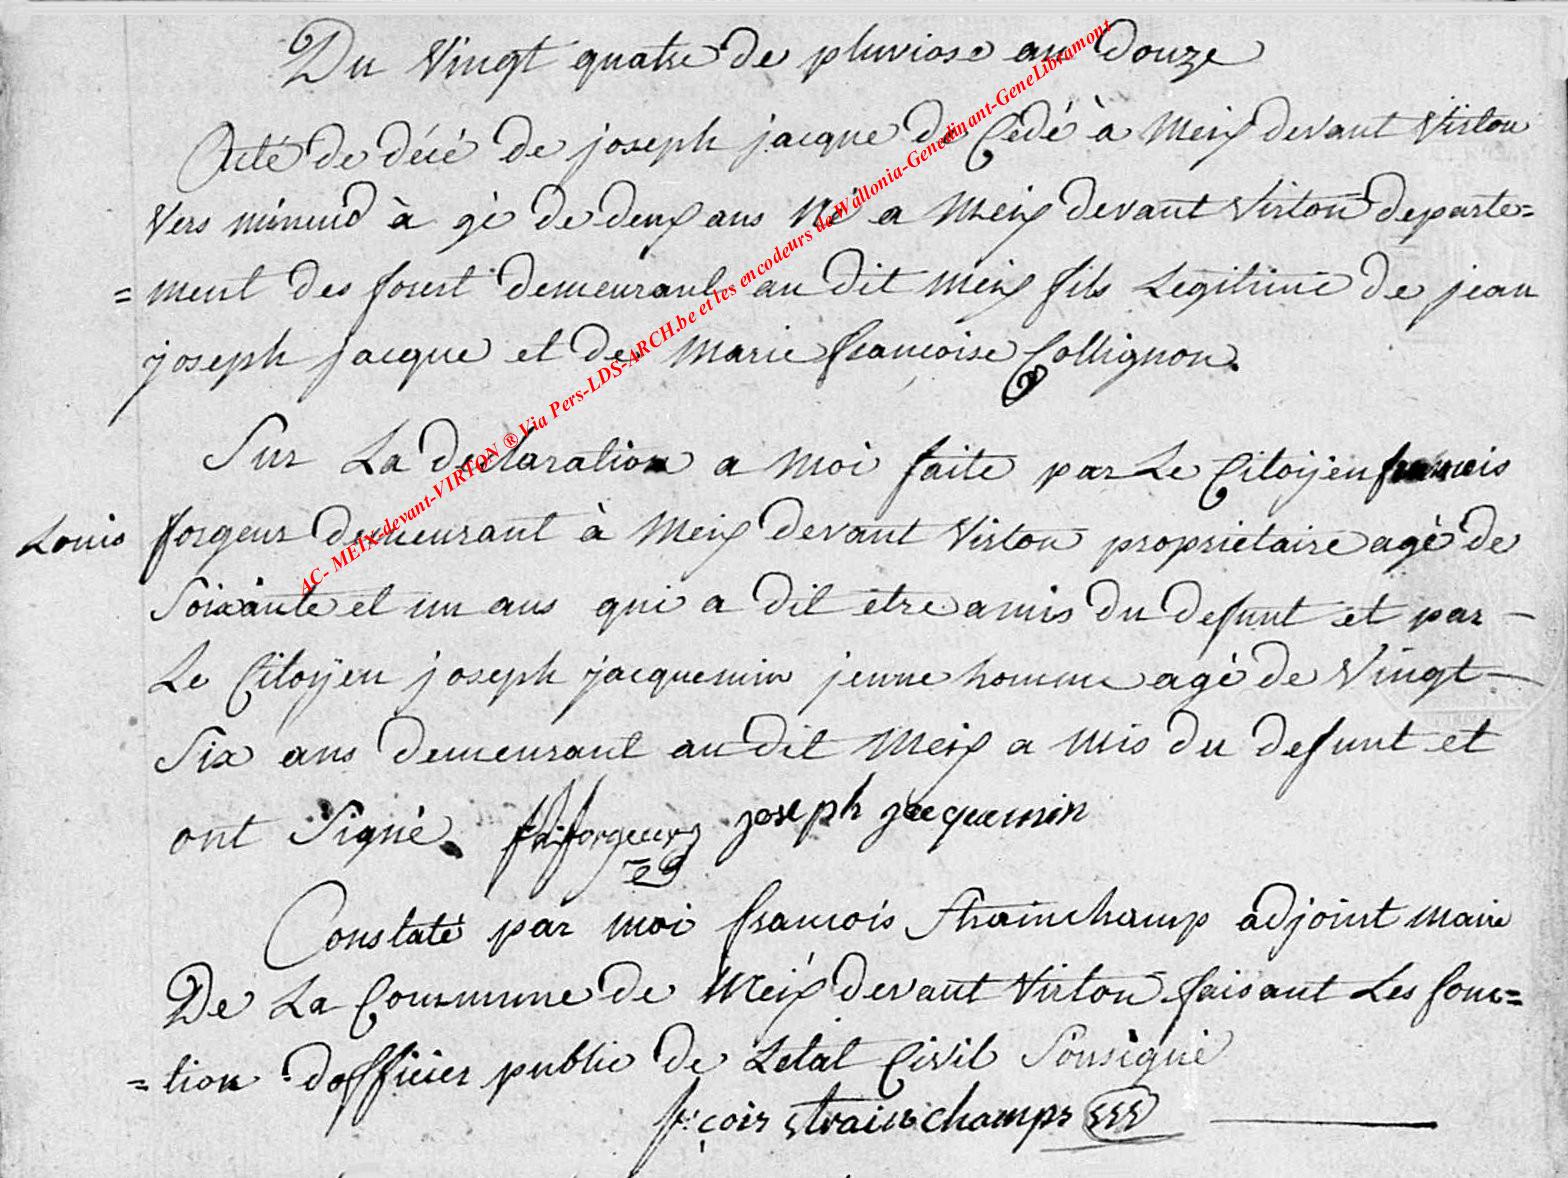 Du Vingt quatre de pluviose an Douze
Acte de décé de joseph jacque de Cédé à Meix devant Virton
Vers minuid à gé de deux ans Né a Meix devant Virton departe=
=ment des forest demeurant au dit Meix fils Legitime de jean
joseph jacque et de Marie françoise Collignon.
Sur La declaration a Moi faite par Le Citoijen francois
Louis forgeur demeurant à Meix devant Virton proprietaire agé de
Soixante et un ans qui a dit etre amis du defunt et par –
Le Citoÿen joseph jacquemin jeune homme agé de Vingt –
Six ans demeurant au dit Meix a mis du defunt et
ont Signé. forgeur joseph jacquemin
Constaté par moi francois Strainchamp adjoint maire
De La Commune de Meix devant Virton faisant Les fonc=
=tion dofficier public de Letat Civil Sousigné
f:çois strainchamps
AC- MEIX-devant-VIRTON ® Via Pers-LDS-ARCH.be et les encodeurs de Wallonia-Genedinant-GeneLibramont